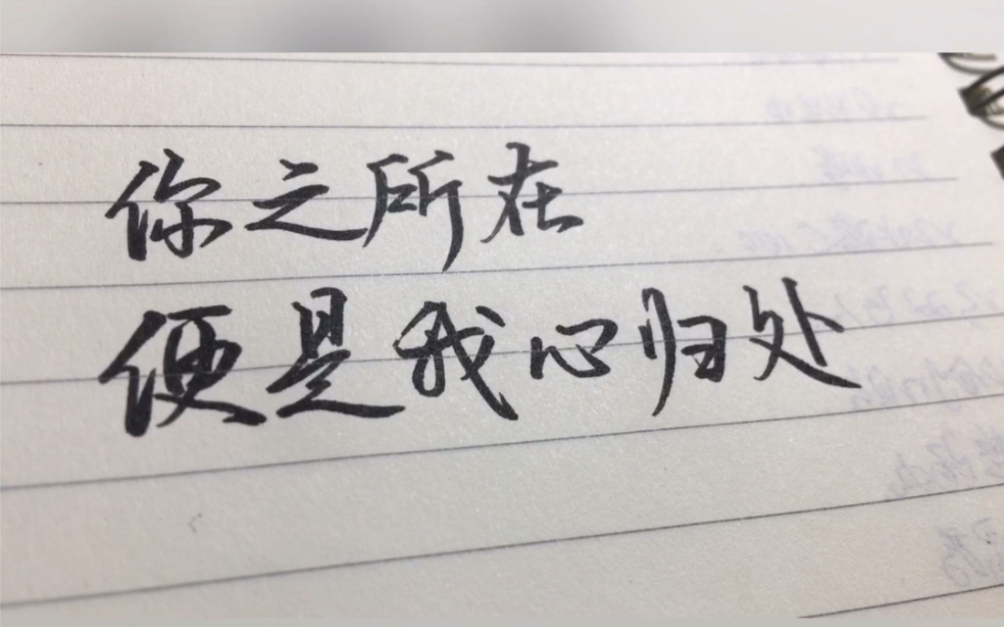 你之所在
便是我心归处